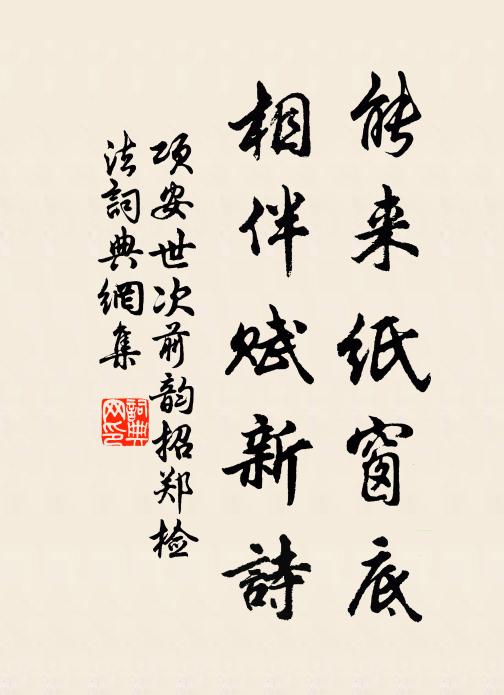 能来纸窗底
相伴赋新詩
项安世次前韵招郑检
法詞典網集
詞典网印